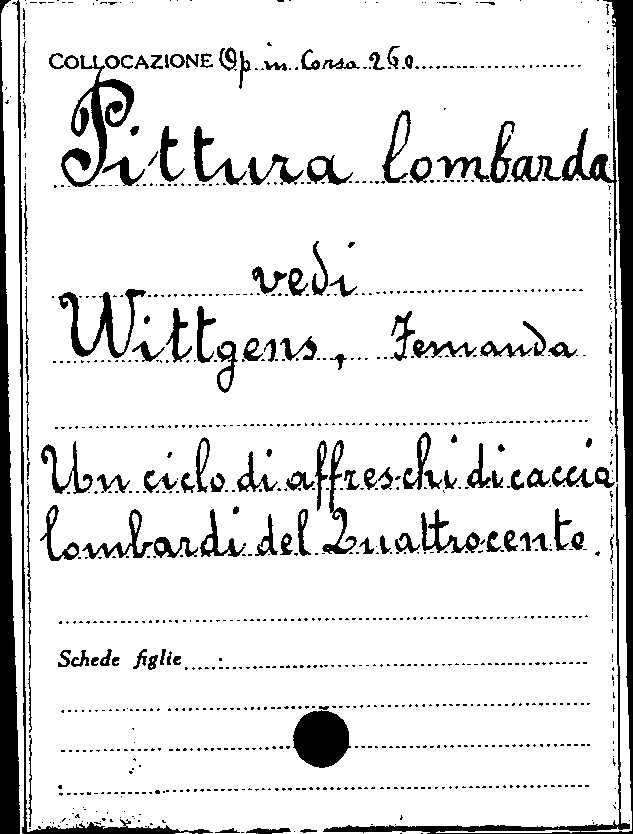 COLLOCAZIONE Op in Corso 260
Pittura lombarda
vedi
Wittgens, Fernanda
Un ciclo di affreschi di caccia
lombardi del Quattrocento.
Schede figlie :